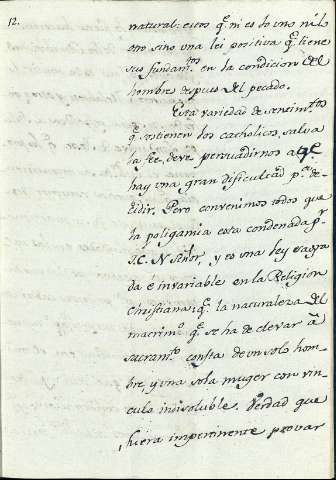 12.
natural: estos q.e ni es do uno ni lo
otro sino una lei positiva q.e tiene
sus fundam.tos en la condicion del
hombre despues del pecado.
Esta variedad de sentim.tos
q.e sostienen los catholicos, salva
la fee, deve persuadirnos a q.e
hay una gran dificultad p.a de-
cidir. Pero convenimos todos que
la poligamia esta condenada p.r
J.C. N Señor, y es una ley sagra
da é invariable en la Religion
christiana; q.e la naturaleza del
matrim.o q.e se ha de elevar â
sacram.to consta de un solo hom-
bre, y una sola muger con vin-
culo indisoluble. Verdad que
fuera impertinente provar